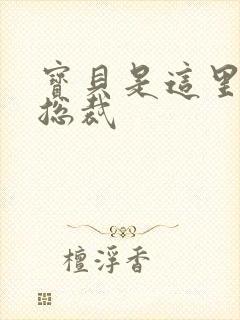 寶貝是這里
總裁
檀浮香